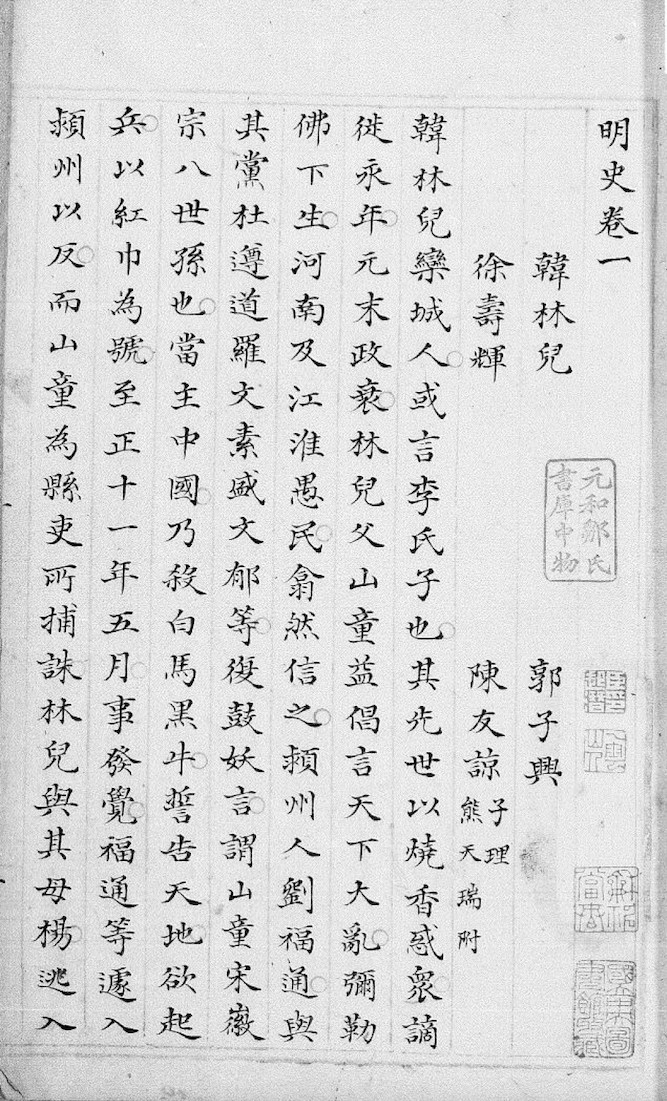 明史卷一
韓林兒 郭子興
徐壽輝 陳友諒 子理 熊天瑞附
韓林兒欒城人或言李氏子也其先世以燒香惑衆謫
徙永年元末政衰林兒父山童益倡言天下大亂彌勒
佛下生河南及江淮愚民翕然信之潁州人劉福通與
其黨杜遵道羅文素盛文郁等復鼓妖言謂山童宋徽
宗八世孫也當主中國乃殺白馬黑牛誓告天地欲起
兵以紅巾為號至正十一年五月事發覺福通等遽入
潁州以反而山童為縣吏所捕誅林兒與其母楊逃入
元和鄒氏
書庫中物